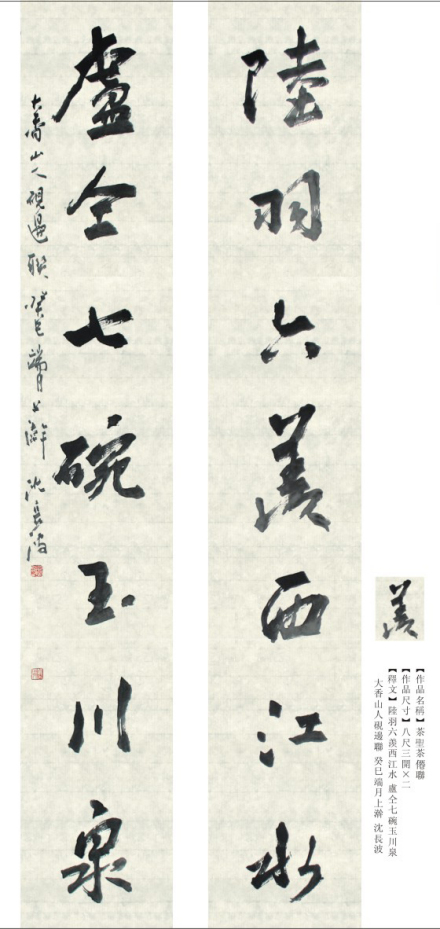 陸羽六羨西江水
盧仝七碗玉川泉
大香山人硯邊聯 癸巳端月上澣 沈長波
羨
【作品名稱】茶聖茶僊聯
【作品尺寸】八尺三開×二
【釋文】陸羽六羨西江水 盧仝七碗玉川泉
大香山人硯邊聯 癸巳端月上澣 沈長波